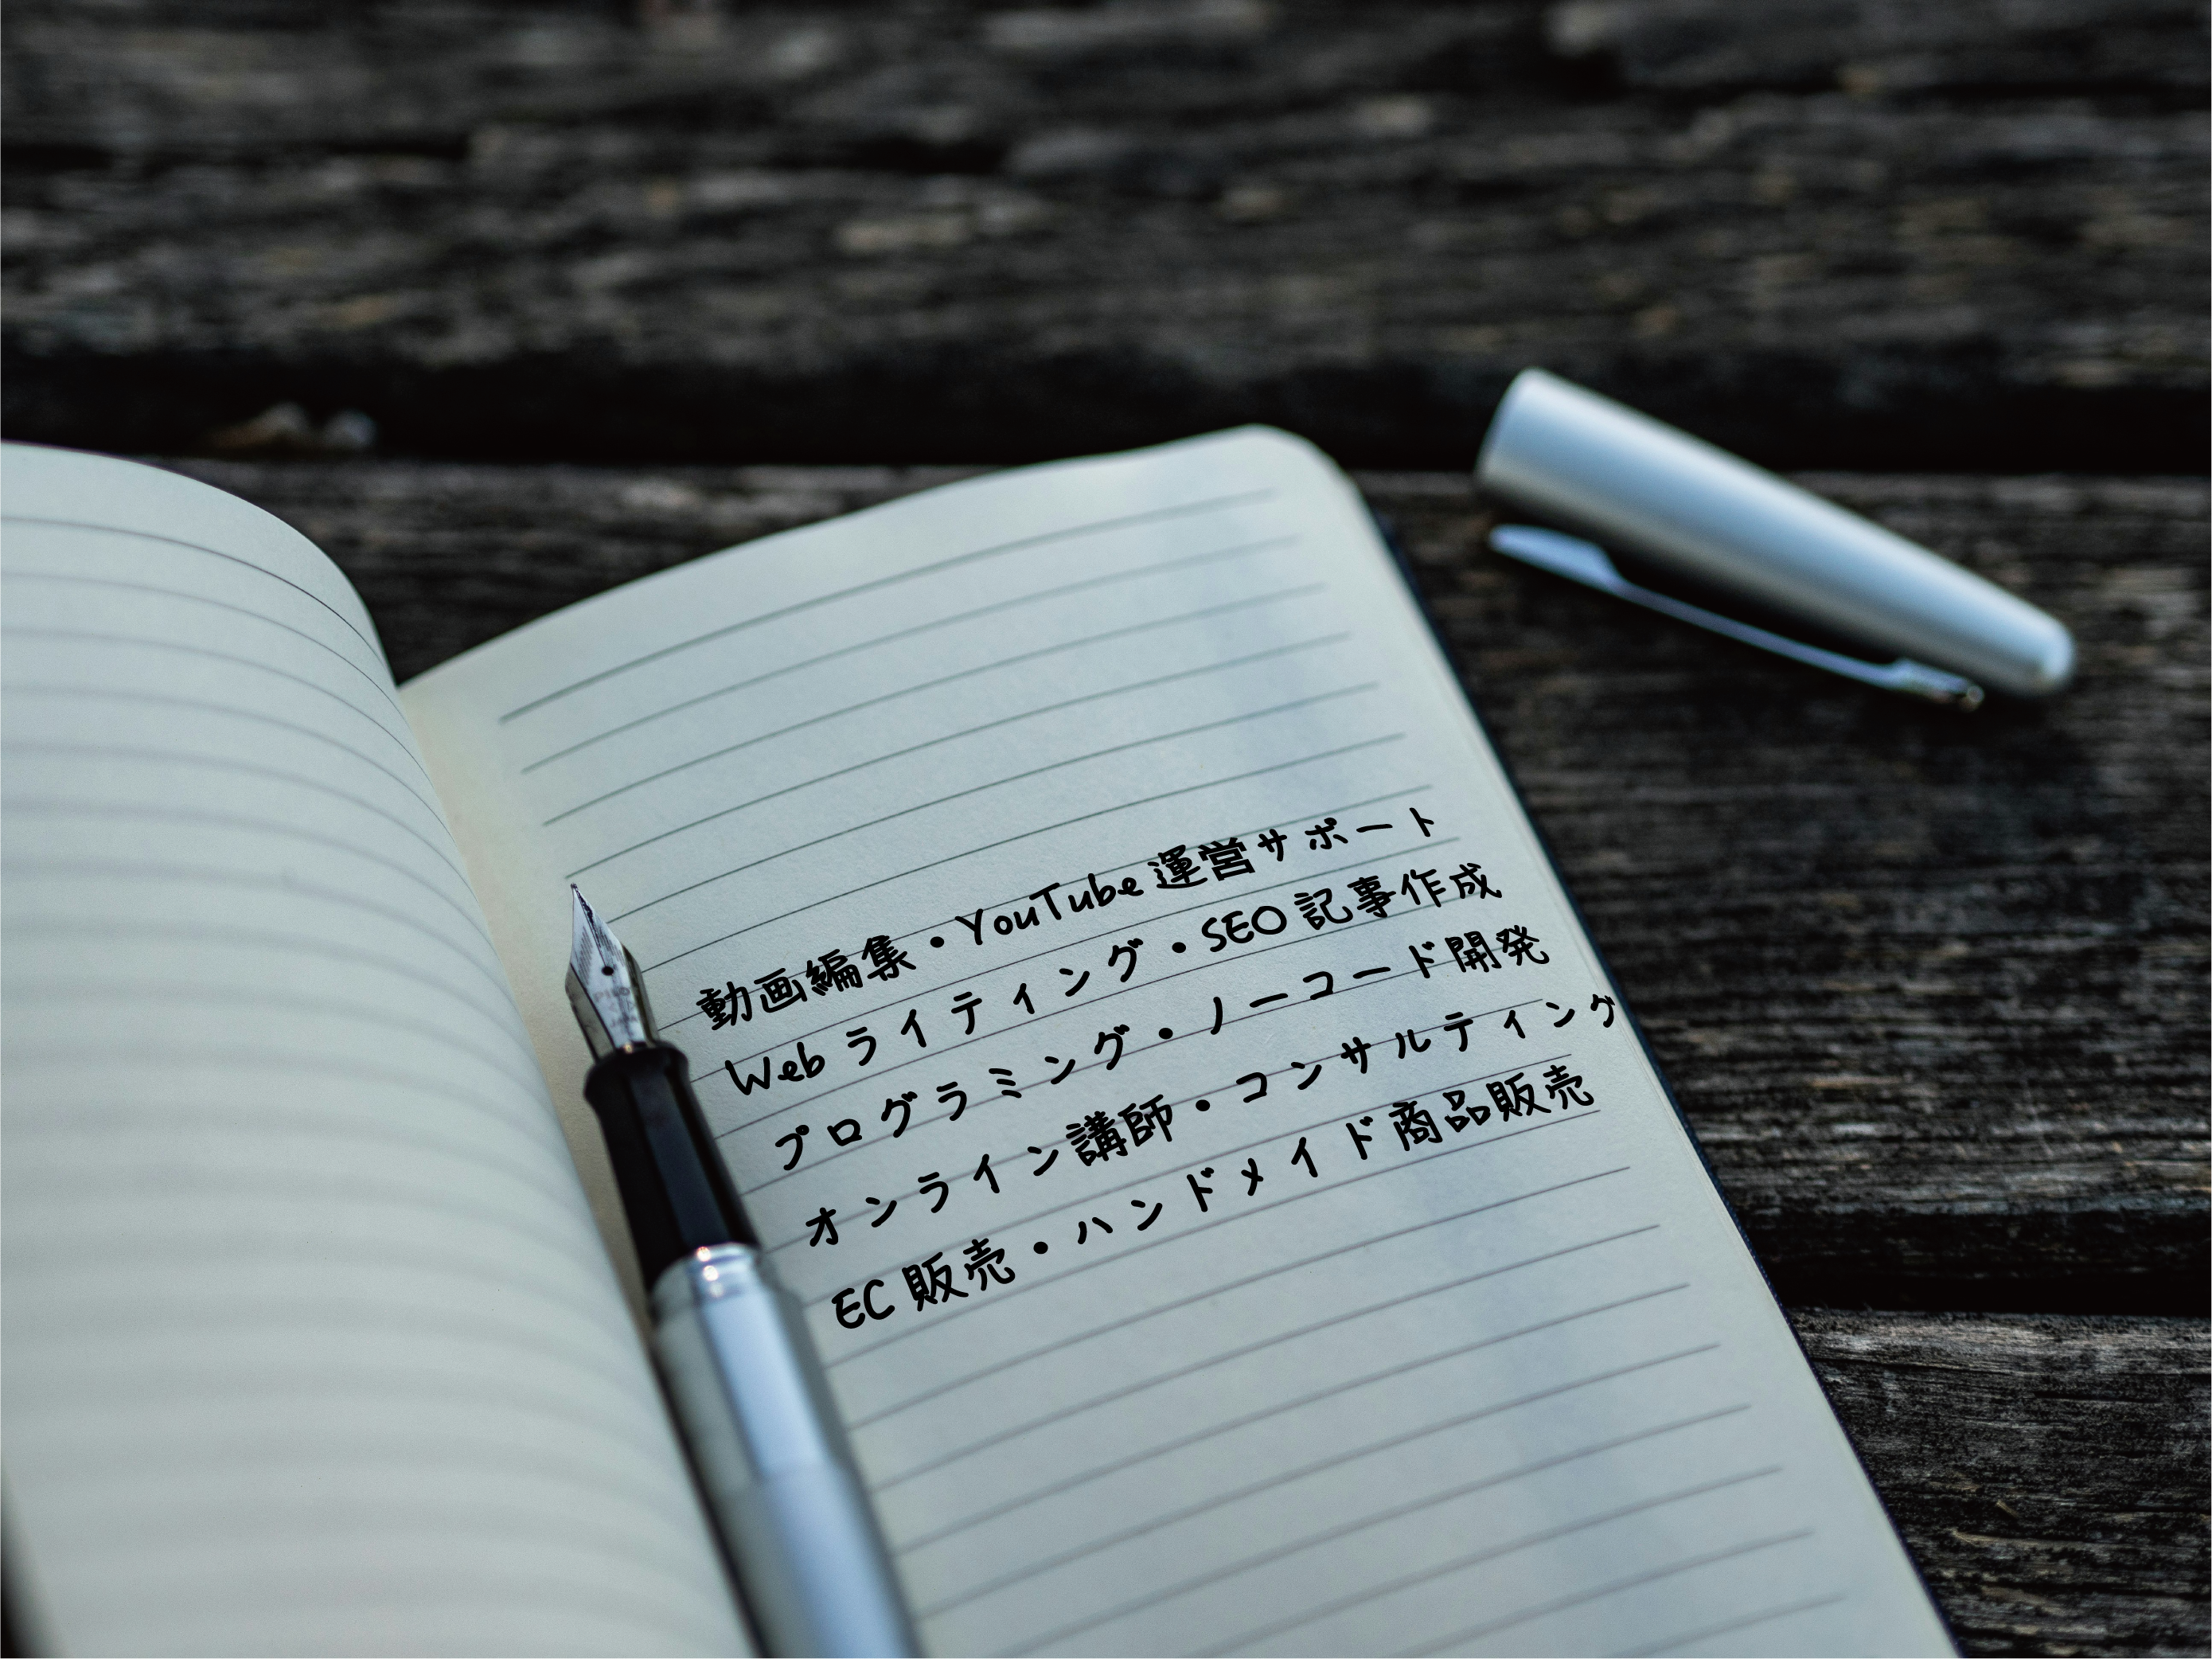 動画編集・YouTube運営サポート
Webライティング・SEO記事作成
プログラミング・ノーコード開発
オンライン講師・コンサルティング
EC販売・ハンドメイド商品販売